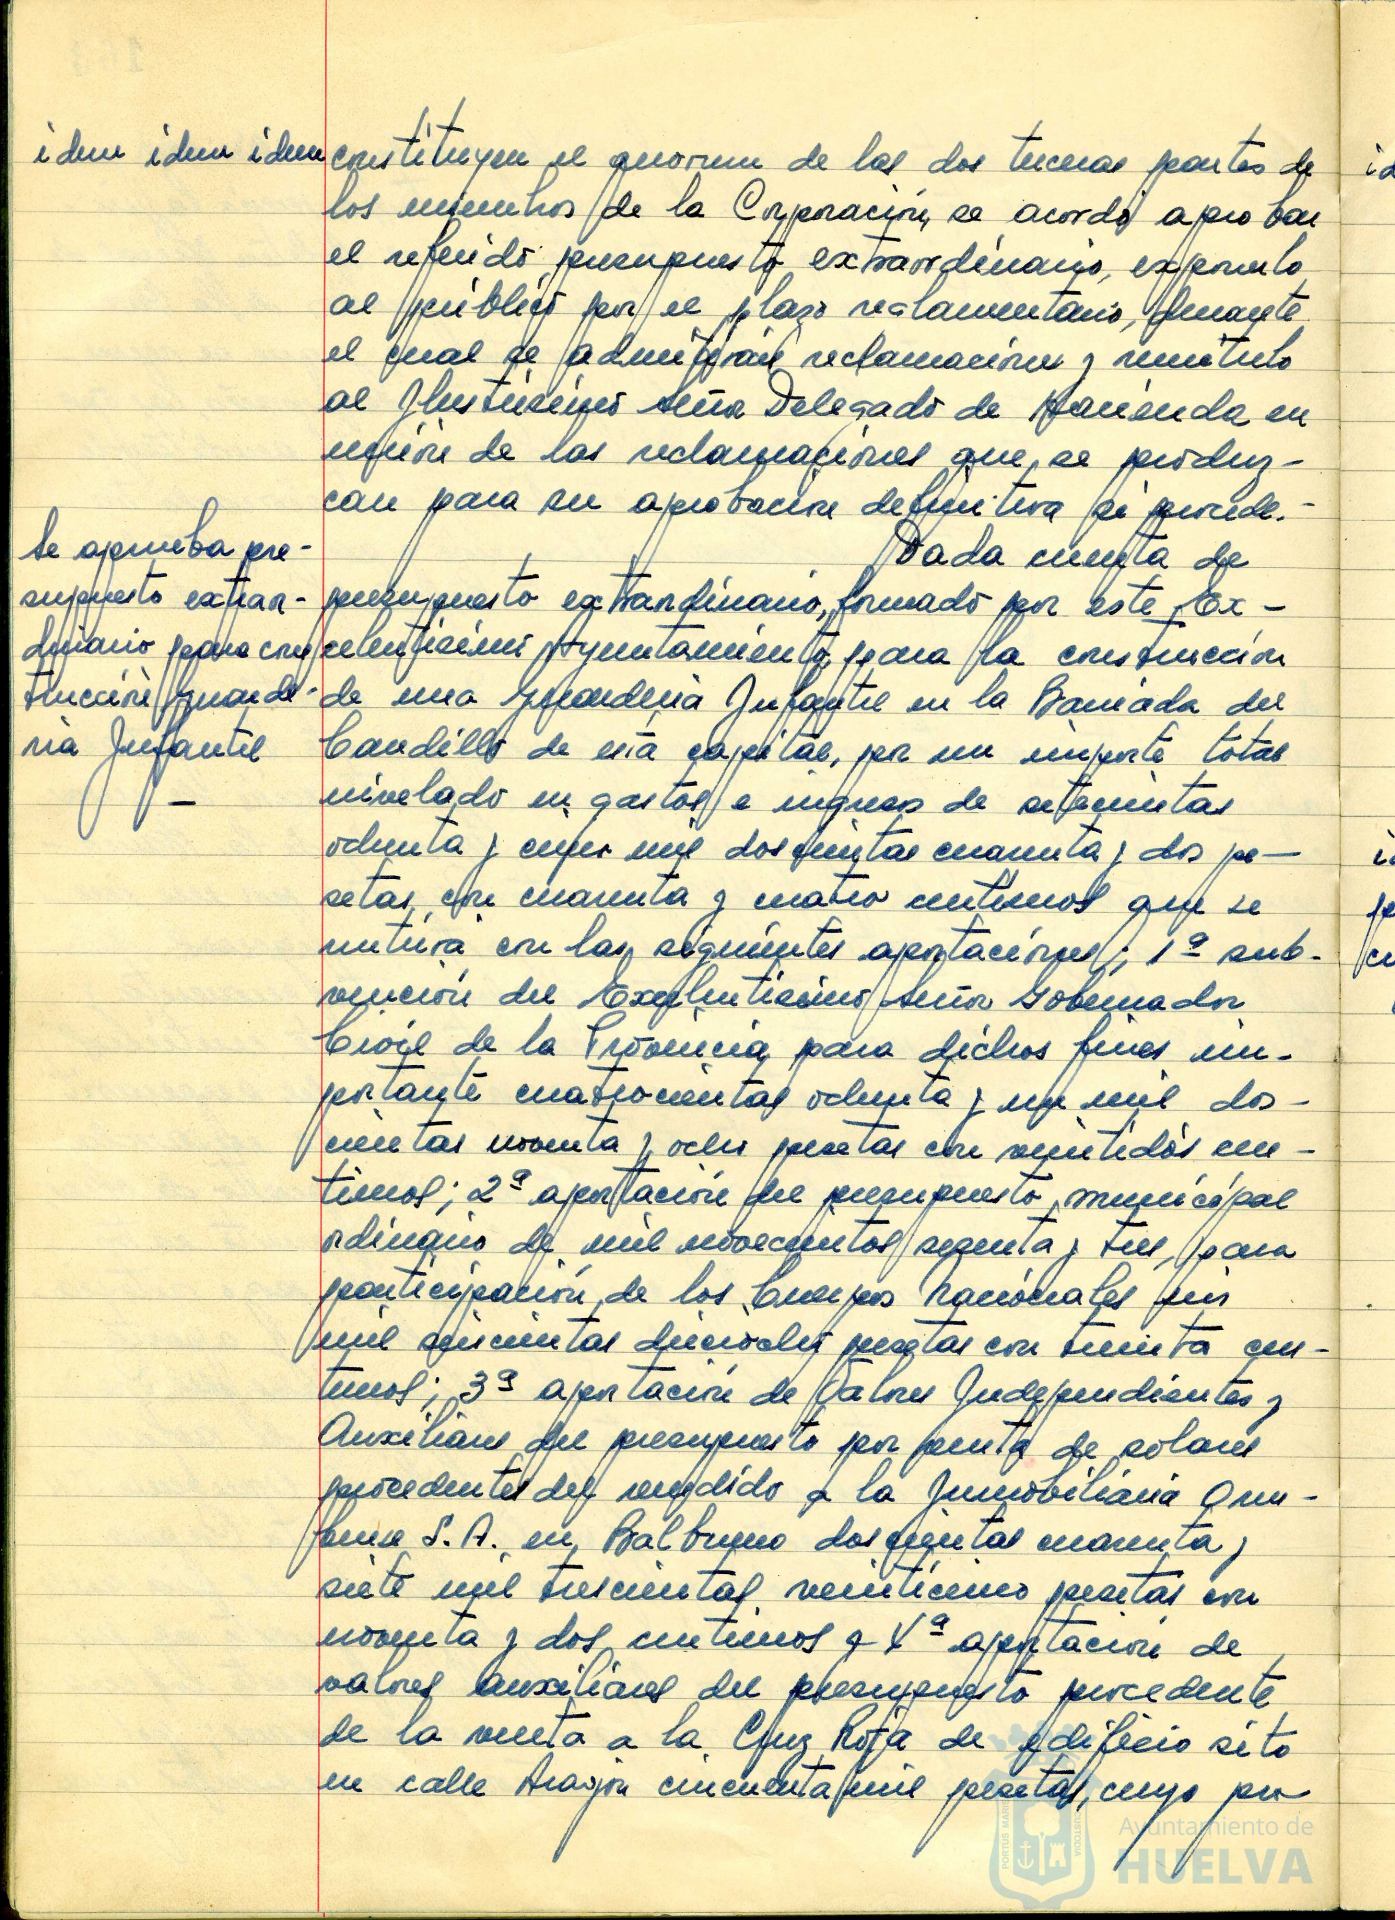 idem idem idem
constituyen el quorum de las dos terceras partes de
los miembros de la Corporación, se acordó aprobar
el referido presupuesto extraordinario, exponerlo
al público por el plazo reglamentario, durante
el cual se admitirán reclamaciones y remitirlo
al Ilustrisimo señor Delegado de Hacienda en
unión de las reclamaciones que se produz-
can para su aprobación definitiva si procede.-
Se aprueba pre-
supuesto extraor-
dinario para cons
trucción Guarde-
ria Infantil
Dada cuenta de
presupuesto extraordinario, formado por este Ex-
celentisimo Ayuntamiento, para la construcción
de una Guarderia Infantil en la Barriada del
Caudillo de esta capital, por un importe total
nivelado en gastos e ingresos de setecientas
ochenta y cinco mil doscientas cuarenta y dos pe-
setas, con cuarenta y cuatro centimos que se
nutrirá con las siguientes aportaciones; 1ª sub-
vención del Excelentisimo Señor Gobernador
Civil de la Provincia, para dichos fines im-
portante cuatrocientas ochenta y un mil dos-
cientas noventa y ocho pesetas con veintidós cen-
timos; 2ª aportación del presupuesto municipal
ordinario de mil novecientos sesenta y tres, para
participación de los Cuerpos Nacionales seis
mil seiscientas dieciocho pesetas con treinta cen-
timos; 3ª aportación de Valores Independientes y
Auxiliares del presupuesto por venta de solares
procedentes del vendido a la Inmobiliaria
S.A. en Balbueno doscientas cuarenta y
siete mil trescientas veinticinco pesetas con
noventa y dos centimos y 4ª aportación de
valores auxiliares del presupuesto procedente
de la venta a la Cruz Roja de edificio sito
en calle Aragón cincuenta mil pesetas, cuyo pre
Ayuntamiento de
HUELVA